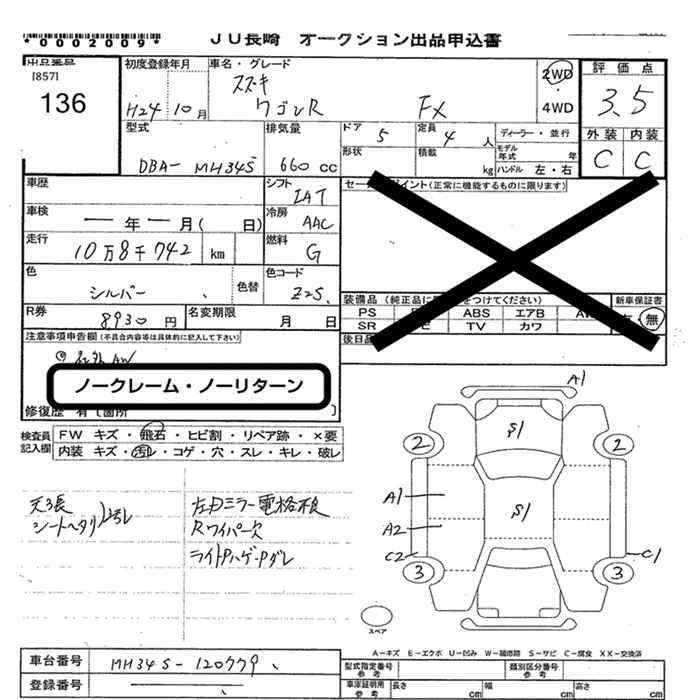 *0002009* JU長崎 オークション出品申込書
出品番号 初度登録年月 車名・グレード 評価点
[857] スズキ 2WD
136 H24 10月 ワゴンR FX 4WD 3.5
型式 排気量 ドア 5 定員 4 人 ディーラー・並行 外装 内装
形状 積載 kg モデル年式 年 C C
DBA- MH34S 660 cc ハンドル 左・右
車歴 シフト IAT セールスポイント(正常に機能するものに限ります)
車検 ー 年 ー 月( 日) 冷房 AAC
走行 10万8千742 km 燃料 G
色 シルバー 色替 色コード Z2S
装備品(純正品に をつけてください) 新車保証書
PS ABS エアB 無
R券 8930円 名変期限 月 日 SR TV カワ
注意事項申告欄(不具合内容等は具体的に記入して下さい) 後日品
社外AW
ノークレーム・ノーリターン
修復歴 有〔箇所 〕
検査員記入欄 FW キズ・飛石・ヒビ割・リペア跡・×要
内装 キズ・汚レ・コゲ・穴・スレ・キレ・破レ
A1
S1
2 2
天張 左ドアミラー電格不良 A1 S1
シートヘタリ 汚レ Rワイパー欠 A2
ライトハゲ C2 C1
3 3
スペア
A-キズ E-エクボ U-凹み W-補修跡 S-サビ C-腐食 XX-交換済
車台番号 MH34S-120779 型式指定番号 参考 類別区分番号 参考
登録番号 車庫証明用 参考 長さ cm 幅 cm 高さ cm